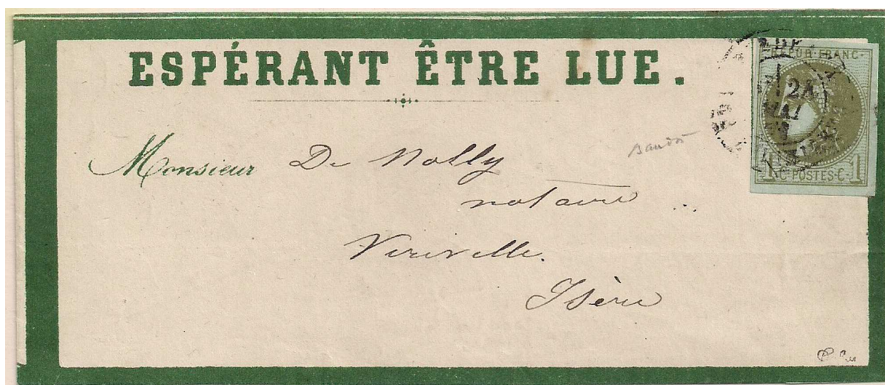 ESPÉRANT ÊTRE LUE.
Monsieur De Nolly
notaire
Viriville.
Isère
RÉPUB. FRANC.
2A
MAI
1 C. POSTES C. 1